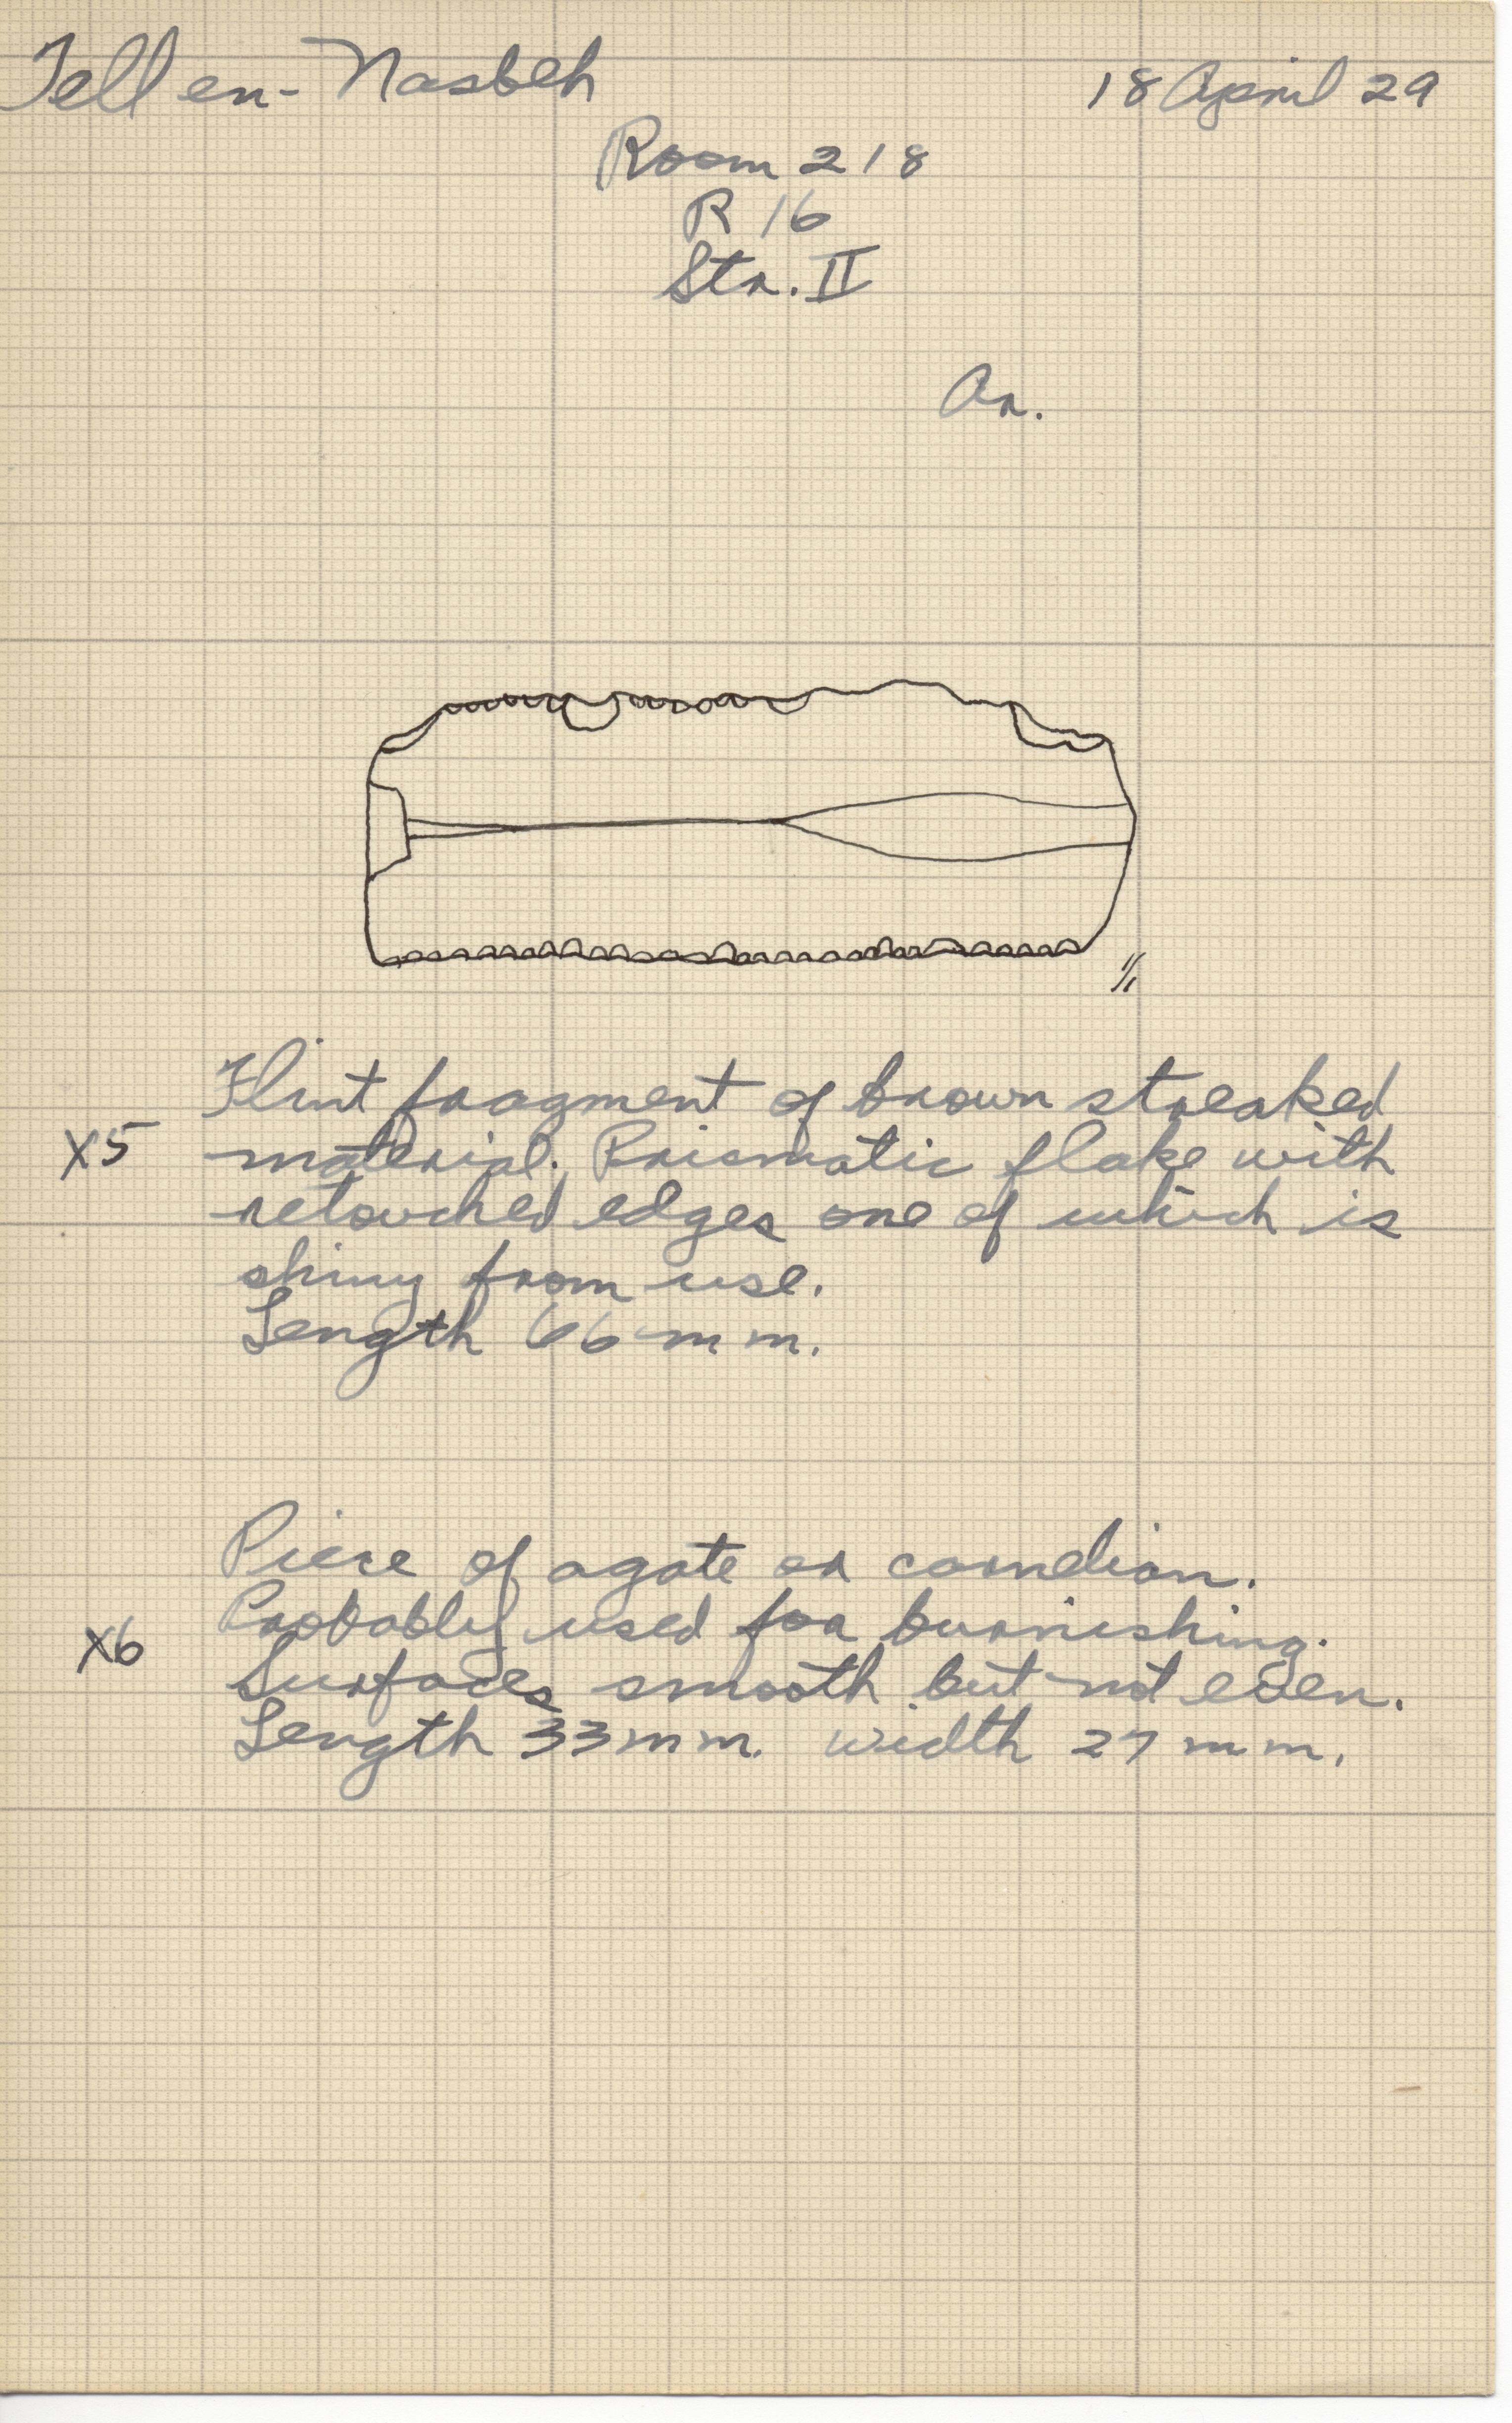 Tell en-Nasbeh
18 April 29
Room 218
R 16
Str. II
Ar.
1/1
Flint fragment of brown streaked
x5 material. Prismatic flake with
retouched edges one of which is
shiny from use.
Length 66 mm.
Piece of agate or carnelian.
Probably used for burnishing.
x6
Surfaces smooth but not even.
Length 33 mm. width 27 mm.